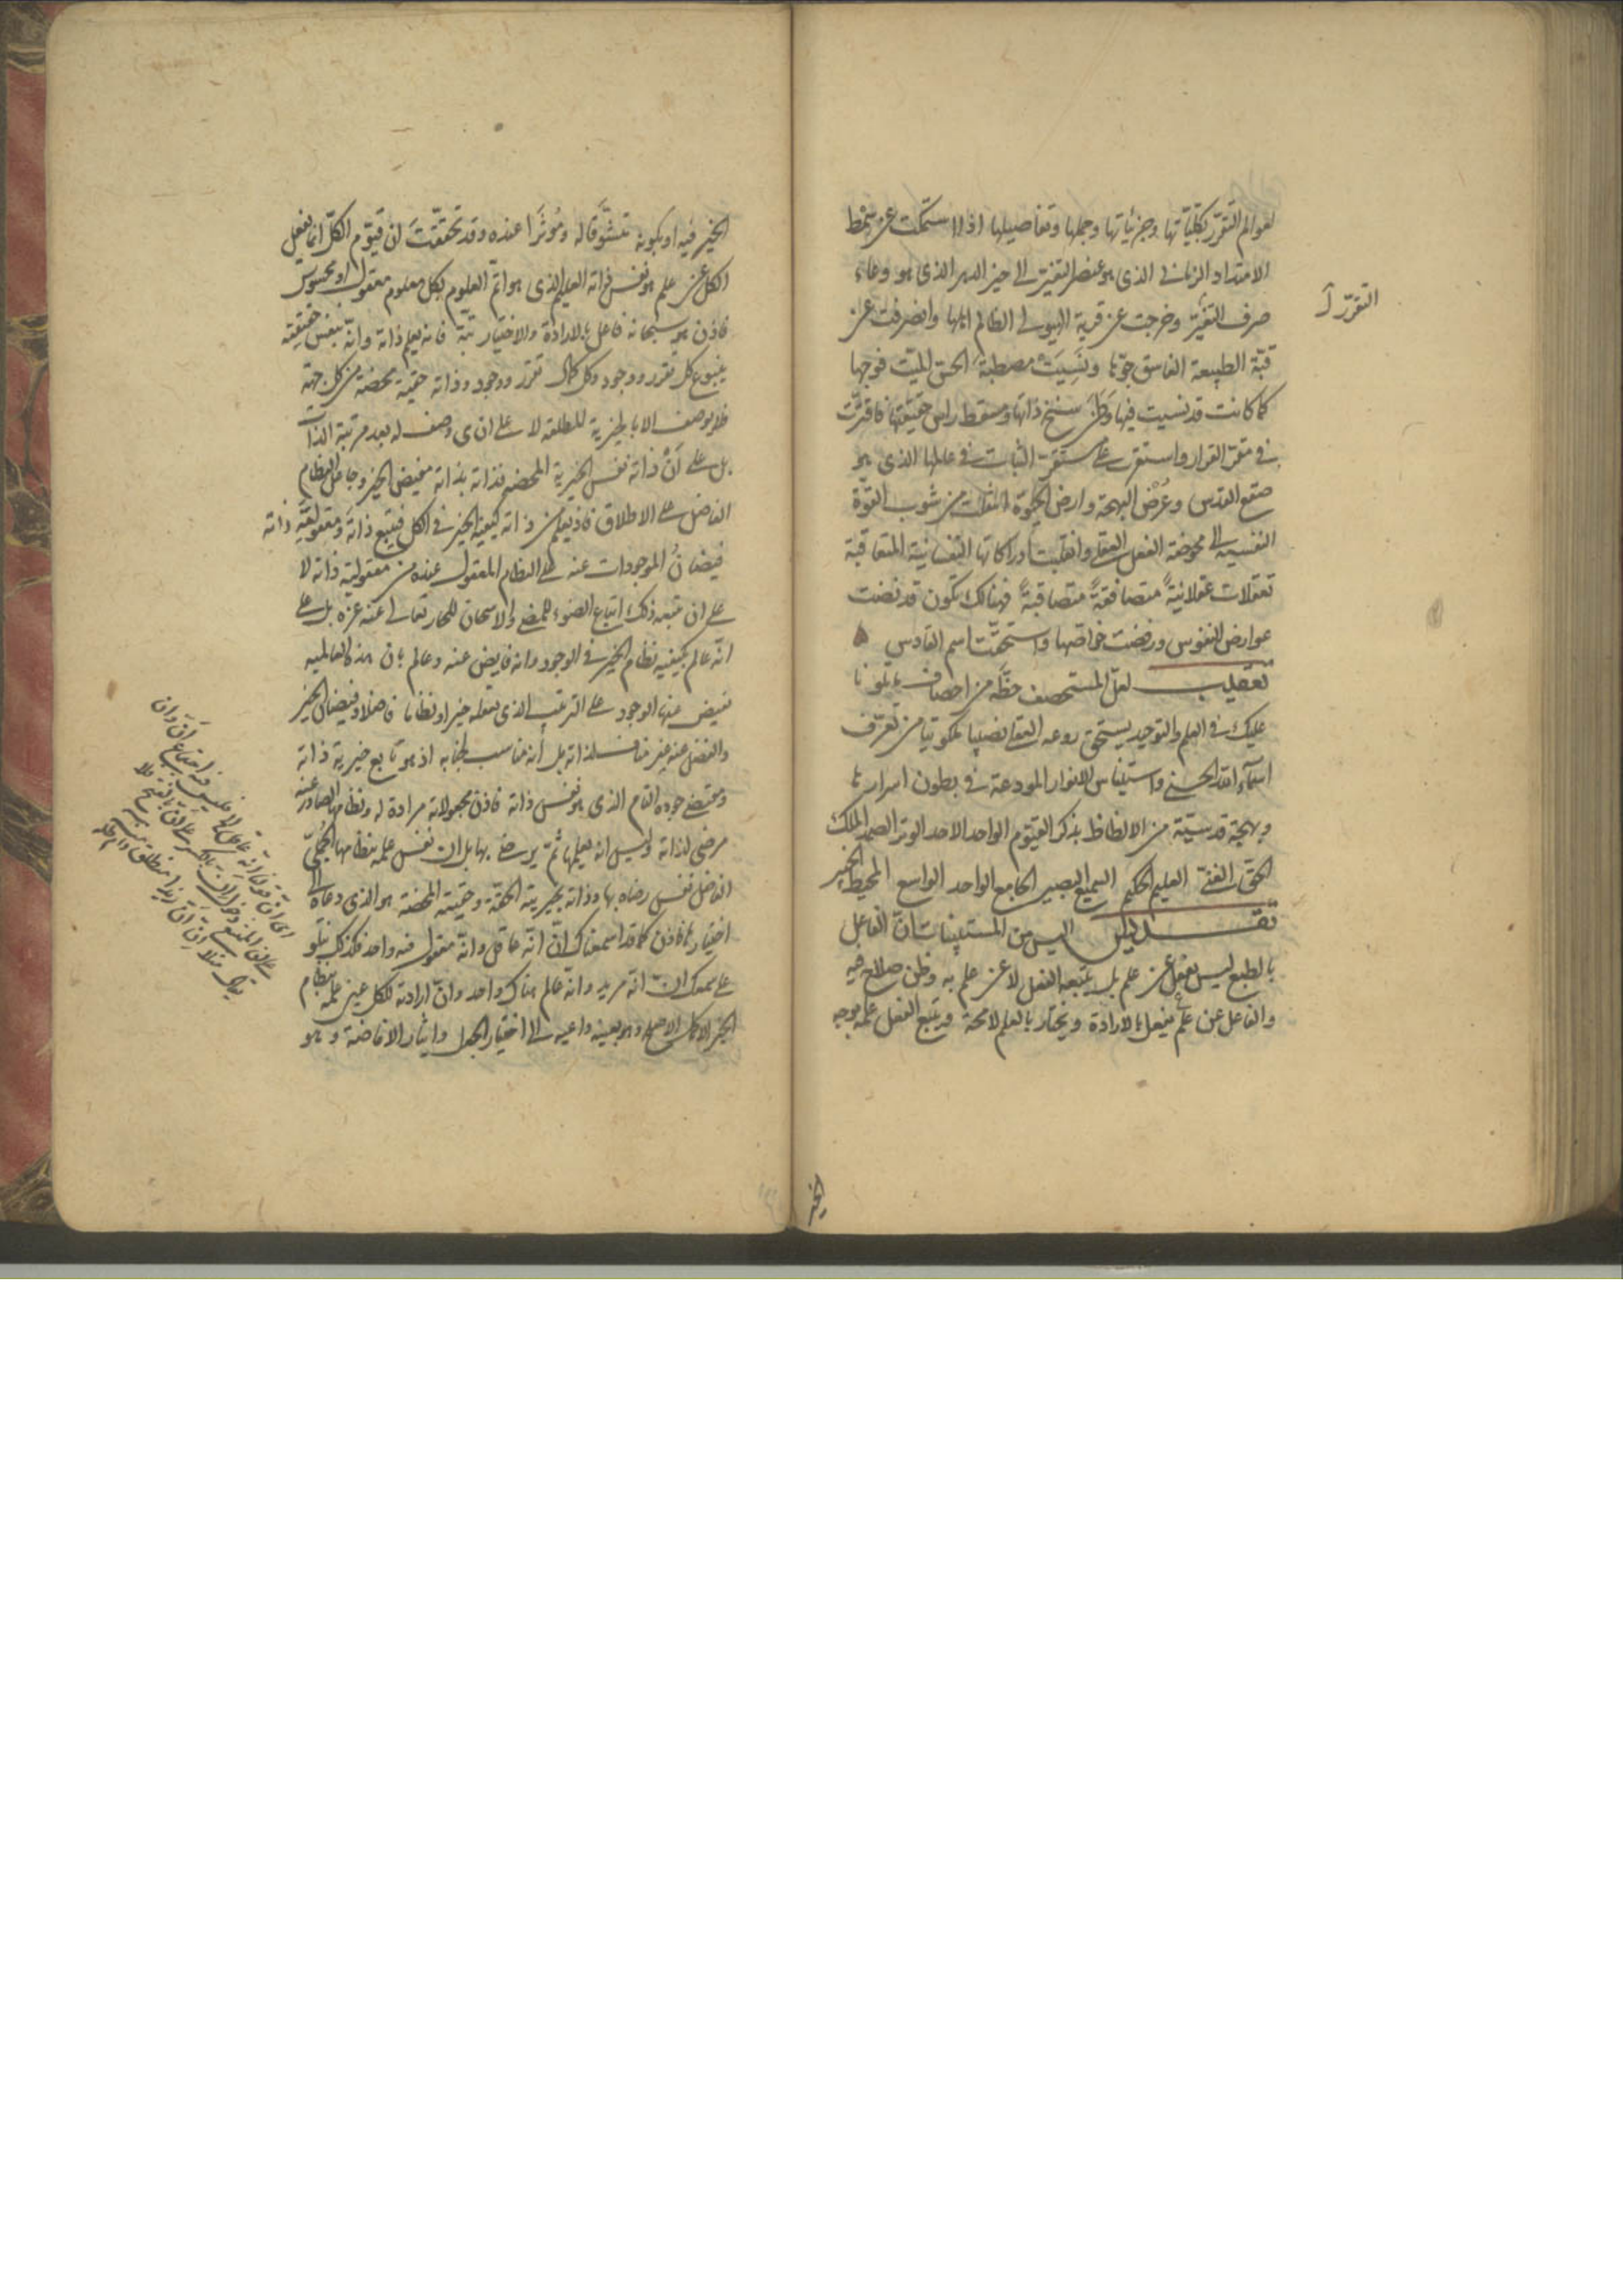 لعوالم التقرّر بكليّاتها وجزئياتها وجملها وتفاصيلها اذا استمكنت عن نمط
الامتداد الزمانى الذى هو عنصر التغيّر الى حيز الدهر الذى هو وعاء
صرف التغيّر وخرجت عن قرية الهيولى الظالم اهلها وانصرفت عن
قبّة الطبيعة الفاسق جوّها ونَسِيَت مصطبة الحسّ الميّت فوجها
كما كانت قد نسيت فيها وَطَنَ سنخ ذاتها ومسقط راس حقيقتها فاقترّت
فى مقرّ القرار واستقرت على مستقرّ الثبات فى عالمها الذى هو
صقع القدس وعُرْض البهجة وارض الحيوة انتقلت من شوب القوّة
النفسية الى محوضة الفعل العقلى وانقلبت ادراكاتها النفسانية المتعاقبة
تعقلات عقلانيةً متصافقةً متصاقبةً فهنالك تكون قد نضت
عوارض النفوس ورفضت خواصّها واستحقّت اسم القادس
تعقيب لعلّ المستحصف حظّه من احصاف ما تلونا
عليك فى العلم والتوحيد يستحق روعه القا نصيبا ملكوتيا من تعرّف
اسمآء الله الحسنى واستيناس للانوار المودعة فى بطون اسرارها
وبهجة قدسيّة من الالظاظ بذكر القيّوم الواحد الاحد الوتر الصمد الملك
الحقّ الغنىّ العليم الحكيم السميع البصير الجامع الواجد الواسع المحيط الخبير
تقـديس اليس من المستبينات انّ الفاعل
بالطبع ليس يفعل عن علم بل يتبعه الفعل لا عن علم به وظن صلاح فيه
والفاعل عن علم يفعل بالارادة ويختار بالعلم لامحة فيتبع الفعل علمه بوجه
التقرّر
الخير
الخير فيه او بكونه متشوَّقا له ومُوثَرا عنده وقد تحققّتَ ان قيّوم الكلّ انما يفعل
الكل عن علم هو نفس ذاته العليم الذى هو اتمّ العلوم بكل معلوم معقول او محسوس
فاذن هو سبحانه فاعل بالارادة والاختيار بتّة فانه يعلم ذاته وانّه بنفس حقيقته
ينبوع كل تقرر ووجود وكل كمال تقرر ووجود وذاته حقيّة محضة من كل جهة
فلا يوصف الا بالخيرية المطلقه لا على ان ى وصف له بعد مرتبة الذات
بل على اَنّ ذاته نفس الخيرية المحضه فذاته بذاته مفيض الخير وجاعل النظام
الفاضل على الاطلاق فاذ يعلم من ذاته كيفية الخير فى الكل فيتبع ذاته ومعقوليّة ذاته
فيضانُ الموجودات عنه على النظام المعقول عنده من معقولية ذاته لا
على ان يتبعه ذلك اتباع الضوء للمضى والاسخان للحار تعالى عنه عزه بل على
انه عالم بكيفية نظام الخير فى الوجود وانه فايض عنه وعالم بان هذه العالمية
تفيض عنها الوجود على الترتيب الذى يعقله خيرا ونظاما فاضلا وفيضان الخير
والفضل عنه غير مناف لذاته بل أنه مناسب لجنابه اذ هو تابع خيرية ذاته
ومقتضى جوده التام الذى هو نفس ذاته فاذن مجعولاته مرادة له ونظامها الصادر عنه
مرضى لذاته وليس انه يعلمها ثمّ يرضى بها بل ان نفس علمه بنظامها الجُملىّ
الفاضل نفس رضاه بها وذاته بخيريته الحقّة وحقيته المحضة هو الذى دعاه الى
اختيارها فاذن كما قد اسمعناك انّ انّه عاقل وانّه معقول منه واحد فكذلك نتلو
على سمعك ان انه مريد وانّه عالم هناك واحد وانّ ارادته للكل عين علمه بنظام
الخير الاكمل الاصلح وهو بعينه داعيه الى اختيار الجعل وايثار الافاضة وهو